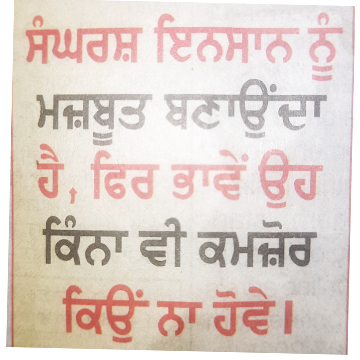 ਸੰਘਰਸ਼ ਇਨਸਾਨ ਨੂੰ
ਮਜ਼ਬੂਤ ਬਣਾਉਂਦਾ
ਹੈ, ਫਿਰ ਭਾਵੇਂ ਉਹ
ਕਿੰਨਾ ਵੀ ਕਮਜ਼ੋਰ
ਕਿਉਂ ਨਾ ਹੋਵੇ।